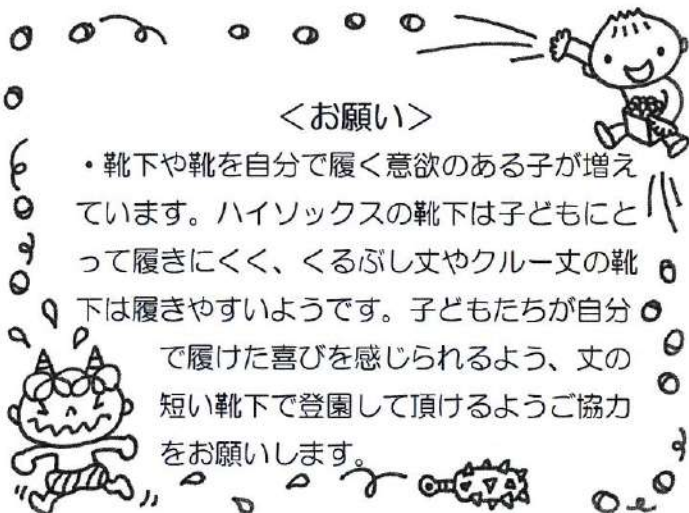 ＜お願い＞
・靴下や靴を自分で履く意欲のある子が増え
ています。ハイソックスの靴下は子どもにと
って履きにくく、くるぶし丈やクルー丈の靴
下は履きやすいようです。子どもたちが自分
で履けた喜びを感じられるよう、丈の
短い靴下で登園して頂けるようご協力
をお願いします。